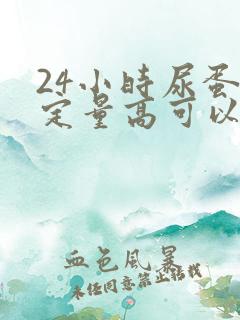 24小时尿蛋
定量高可以
血色风暴
未经同意禁止转载